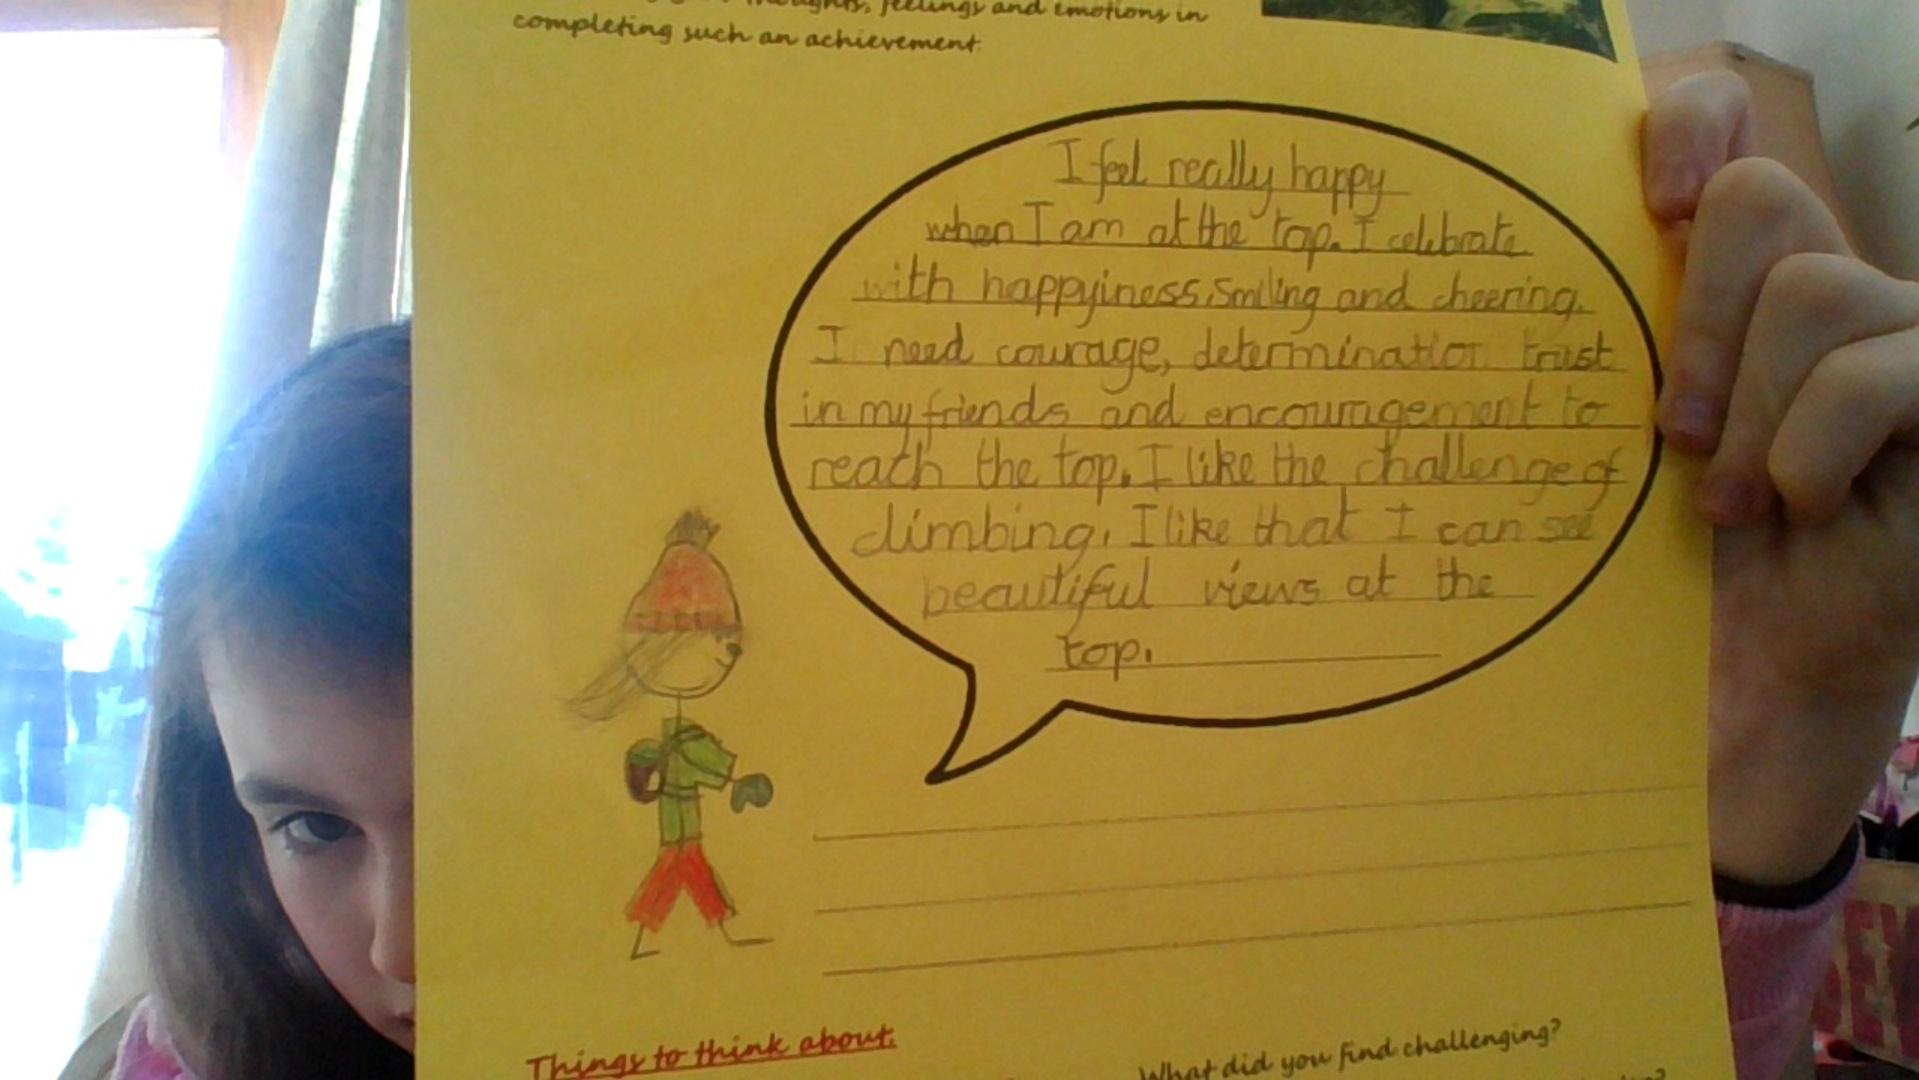 thoughts, feelings and emotions in
completing such an achievement.
I feel really happy
when I am at the top. I celebrate
with happyiness, smiling and cheering.
I need courage, determination trust
in my friends and encouragement to
reach the top. I like the challenge of
climbing. I like that I can see
beautiful views at the
top.
Things to think about.
What did you find challenging?